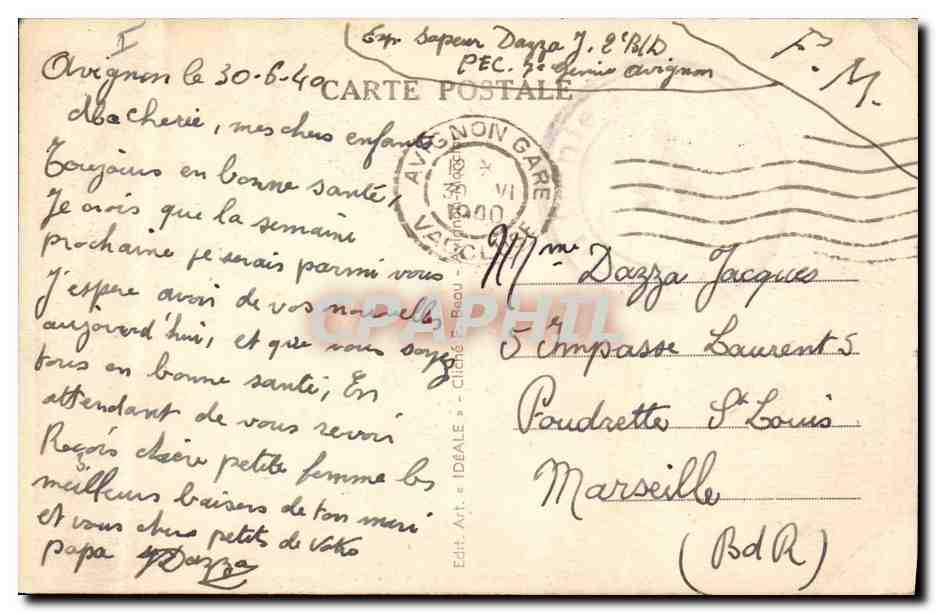 I
Exp Sapeur Dazza J. 2e B/D
PEC. 7e Génie Avignon
F. M.
Avignon le 30-6-40
CARTE POSTALE
Ma cherie, mes chers enfants
Toujours en bonne santé,
Je crois que la semaine
prochaine je serais parmi vous
J'espère avoir de vos nouvelles
aujourd'hui, et que vous soyez
tous en bonne santé, En
attendant de vous revoir
Reçois chère petite femme les
meilleurs baisers de ton mari
et vous chers petits de votre
papa JDazza
AVIGNON GARE
VI
1940
VAUCLUSE
Mme Dazza Jacques
5 Impasse Laurent 5
Poudrette St Louis
Marseille
(BdR)
Edit. Art. « IDÉALE » - Cliché F. Beau - Avignon
CPAPHIL